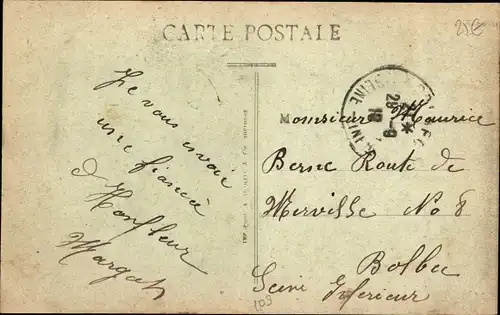 CARTE POSTALE
25€
Je vous envoie
une fiancée
d Honfleur
Margot
Monsieur Maurice
Berne Route de
Merville No 8
Bolbec
Seine Inferieur
103